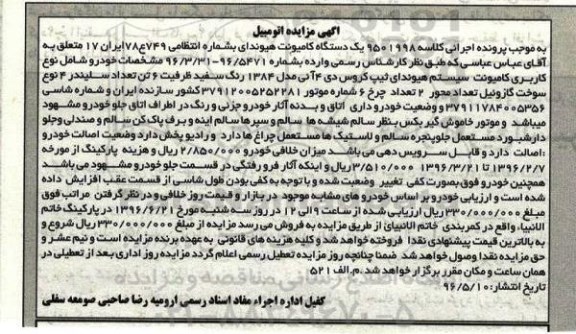 آگهی مزایده اتومبیل
به موجب پرونده اجرائی کلاسه ۹۵۰۱۹۹۸ یک دستگاه کامیونت هیوندای بشماره انتظامی ۷۴۹ع۷۸ ایران ۱۷ متعلق به
آقای عباس عباسی که طبق نظر کارشناس رسمی وارده بشماره ۹۶/۵۴۷۱-۹۶/۳/۳۱ مشخصات خودرو شامل نوع
کاربری کامیونت سیستم هیوندای تیپ کروس دی ۴ آنی مدل ۱۳۸۴ رنگ سفید ظرفیت ۶ تن تعداد سیلندر ۴ نوع
سوخت گازوئیل تعداد محور ۲ تعداد چرخ ۶ شماره موتور ۳۷۹۱۲۰۰۵۲۵۲۲۸۱ کشور سازنده ایران و شماره شاسی
۳۷۹۱۱۷۸۴۰۰۵۳۵۶ و وضعیت خودرو داری اتاق و بدنه آثار خودرو جزئی و رنگ در اطراف اتاق جلو خودرو مشهود
میباشد و موتور خاموش گیر بکس بنظر سالم شیشه ها سالم و سپرها سالم اینه و برف پاک کن سالم و صندلی وجلو
دارشبورد مستعمل جلوپنجره سالم و لاستیک ها مستعمل چراغ ها دارد و رادیو پخش دارد وضعیت اصالت خودرو
:اصالت دارد و قابل سرویس دهی می باشد میزان خلافی خودرو ۲/۸۵۰/۰۰۰ ریال و هزینه پارکینگ از مورخه
۱۳۹۶/۲/۷ تا ۱۳۹۶/۳/۲۱ ۳/۵۱۰/۰۰۰ ریال و اینکه آثار فرو رفتگی در قسمت جلو خودرو مشهود می باشد
همچنین خودرو فوق بصورت کفی تغییر وضعیت شده و با توجه به کفی بودن طول شاسی از قسمت عقب افزایش داده
شده است و ارزیابی خودرو بر اساس خودرو های مشابه موجود در بازار و قیمت روز خلافی و در نظر گرفتن مراتب فوق
مبلغ ۳۳۰/۰۰۰/۰۰۰ ریال ارزیابی شده از ساعت ۹ الی ۱۲ در روز سه شنبه مورخ ۱۳۹۶/۶/۲۱ در پارکینگ خاتم
الانبیاء واقع در کمربندی خاتم الانبیاء از طریق مزایده به فروش می رسد مزایده از مبلغ ۳۳۰/۰۰۰/۰۰۰ ریال شروع و
به بالاترین قیمت پیشنهادی نقدا فروخته خواهد شد و کلیه هزینه های قانونی به عهده برنده مزایده است و نیم عشر و
حق مزایده نقدا وصول خواهد شد ضمنا چنانچه روز مزایده تعطیل رسمی اعلام گردد مزایده روز اداری بعد از تعطیلی در
همان ساعت و مکان مقرر برگزار خواهد شد .م.الف ۵۲۱
تاریخ انتشار: ۹۶/۵/۱۰
کفیل اداره اجراء مفاد اسناد رسمی ارومیه رضا صاحبی صومعه سفلی